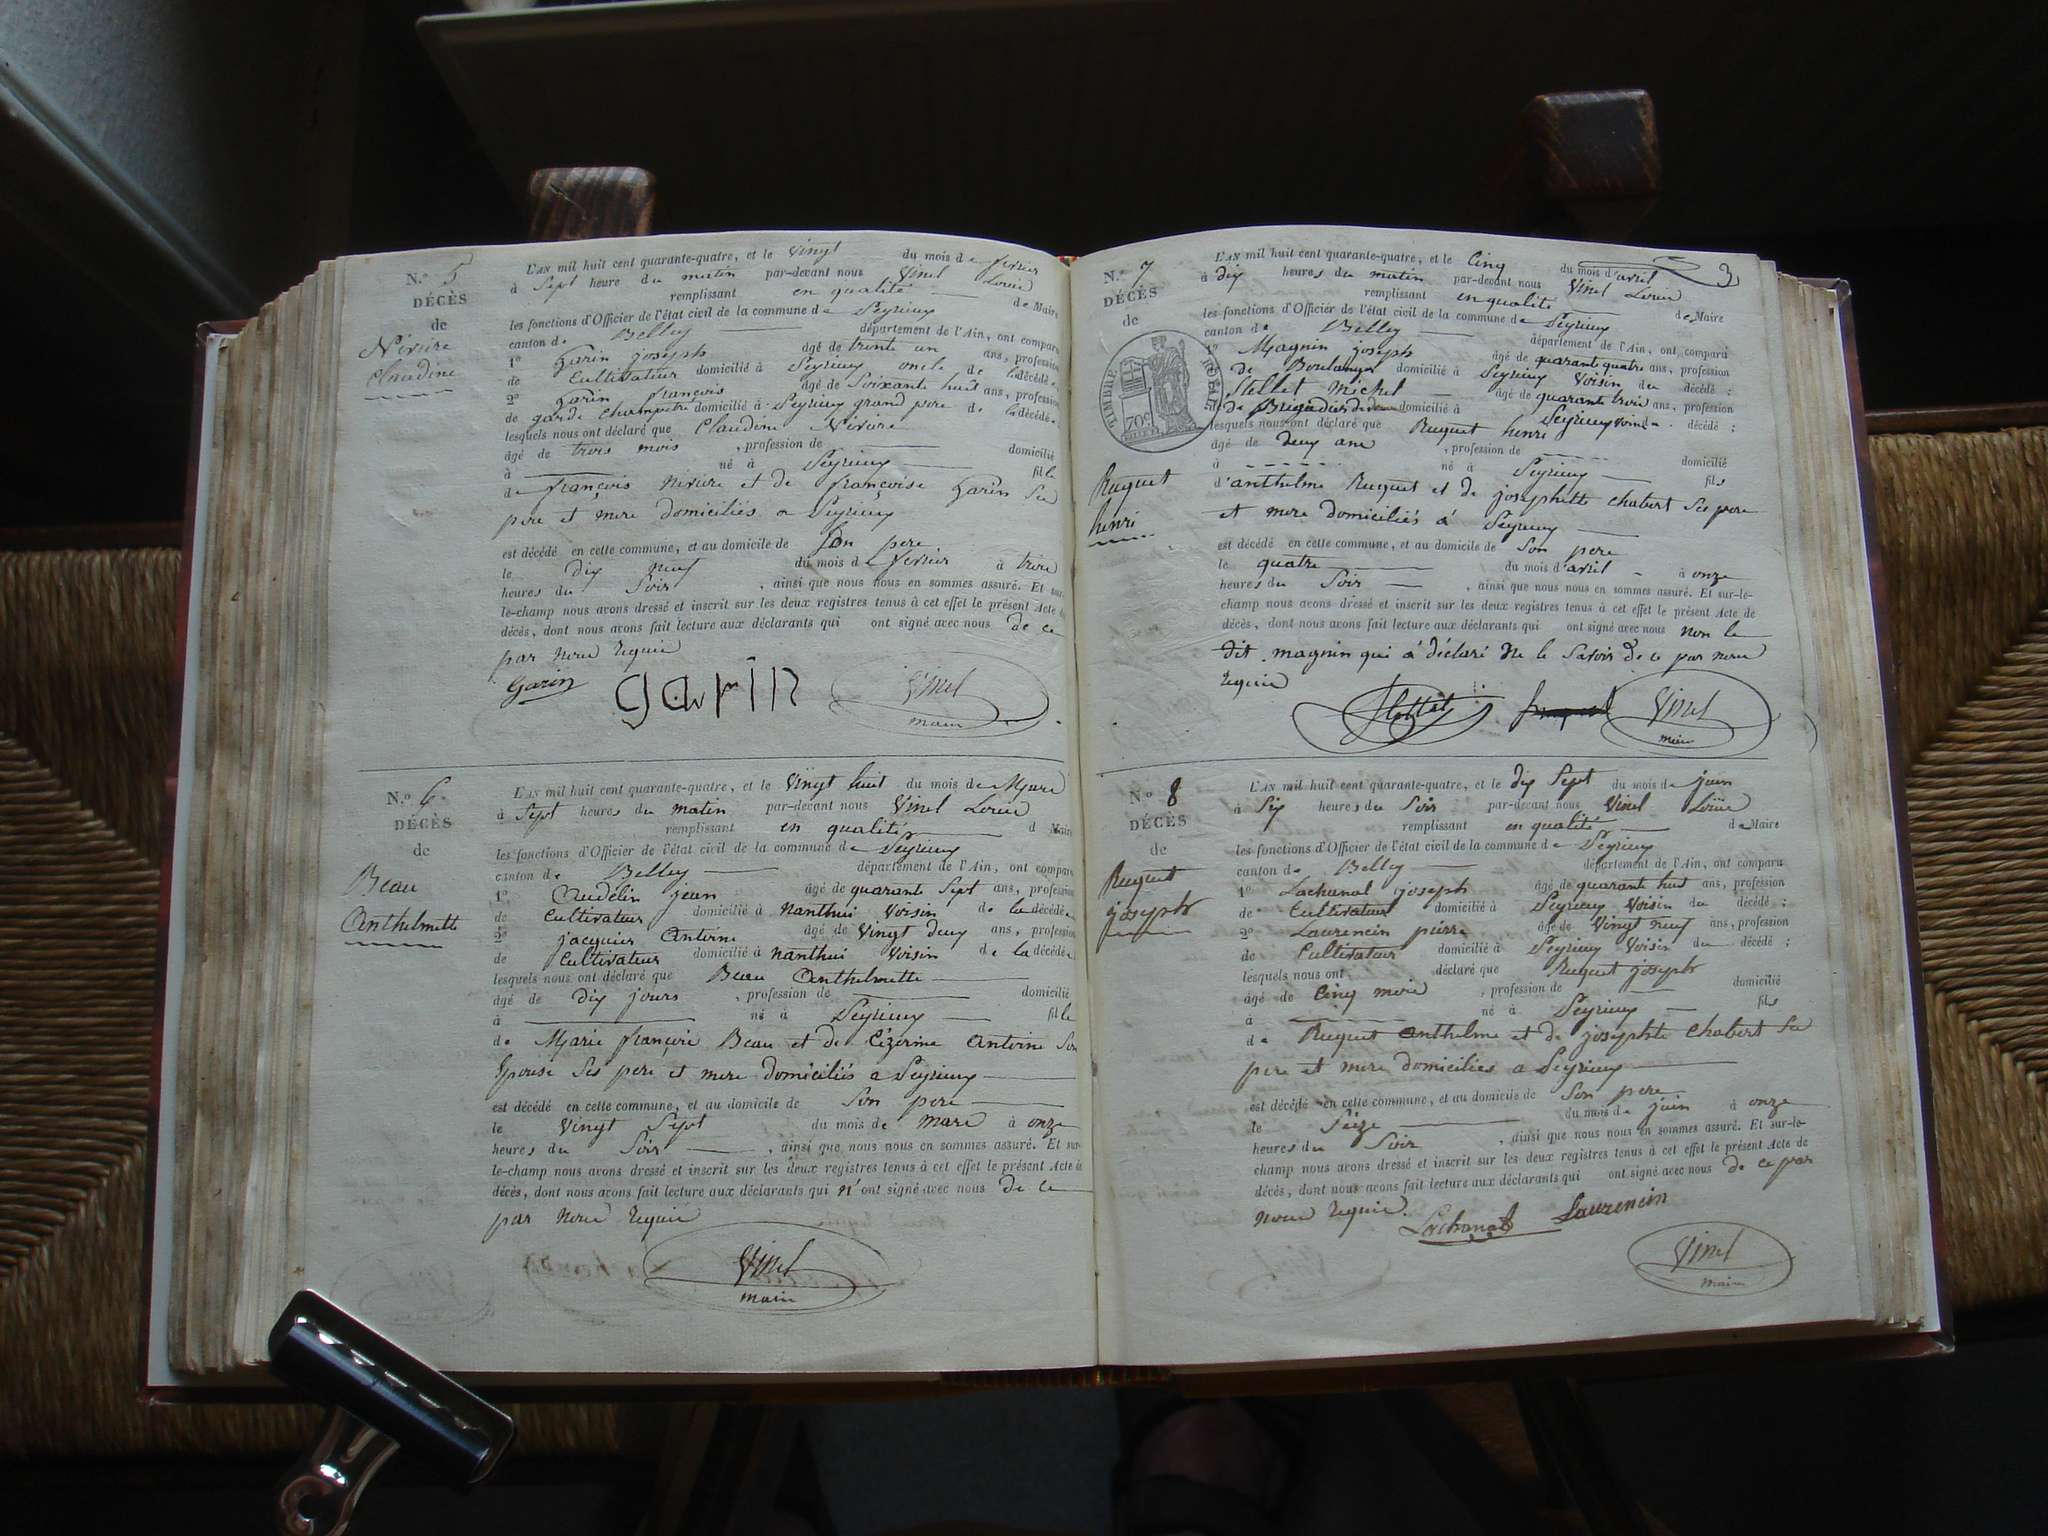 N.o 5
DÉCÈS
de
Nivière
Claudine
L'AN mil huit cent quarante-quatre, et le vingt du mois de fevrier
à Sept heures du matin par-devant nous Vinel Louis
remplissant en qualité de Maire
les fonctions d'Officier de l'état civil de la commune de Peyrieu
canton de Belley département de l'Ain, ont comparu
1o Garin joseph âgé de trente un ans, profession
de Cultivateur domicilié à Peyrieu oncle de la décédée
2o garin françois âgé de Soixante huit ans, profession
de garde champetre domicilié à Peyrieu grand pere de la décédée
lesquels nous ont déclaré que Claudine Nivière
âgé de trois mois, profession de domicilié
à né à Peyrieu fille
de françois nivière et de françoise Garin Ses
pere et mere domiciliés a Peyrieu
est décédé en cette commune, et au domicile de Son pere
le dix neuf du mois de fevrier à
heures du Soir, ainsi que nous nous en sommes assuré. Et sur-
le-champ nous avons dressé et inscrit sur les deux registres tenus à cet effet le présent Acte de
décès, dont nous avons fait lecture aux déclarants qui ont signé avec nous de ce
par nous requis
Garin garin Vinel
maire
N.o 6
DÉCÈS
de
Beau
Anthelmette
L'AN mil huit cent quarante-quatre, et le vingt huit du mois de Mars
à Sept heures du matin par-devant nous Vinel Louis
remplissant en qualité de Maire
les fonctions d'Officier de l'état civil de la commune de Peyrieu
canton de Belley département de l'Ain, ont comparu
1o Audélin jean âgé de quarante Sept ans, profession
de Cultivateur domicilié à nanthui Voisin de la décédée
2o jacquier Antoine âgé de vingt deux ans, profession
de Cultivateur domicilié à nanthui Voisin de la décédée
lesquels nous ont déclaré que Beau Anthelmette
âgé de dix jours, profession de domicilié
à né à Peyrieu fille
de Marie françois Beau et de Antoine Son
Epouse Ses pere et mere domiciliés a Peyrieu
est décédé en cette commune, et au domicile de Son pere
le vingt Sept du mois de mars à onze
heures du Soir, ainsi que nous nous en sommes assuré. Et sur-
le-champ nous avons dressé et inscrit sur les deux registres tenus à cet effet le présent Acte de
décès, dont nous avons fait lecture aux déclarants qui n'ont signé avec nous de ce
par nous requis
Vinel
maire
3
N.o 7
DÉCÈS
de
TIMBRE ROYAL
70c
Ruquet
henri
L'AN mil huit cent quarante-quatre, et le Cinq du mois d'avril
à dix heures du matin par-devant nous Vinel Louis
remplissant en qualité de Maire
les fonctions d'Officier de l'état civil de la commune de Peyrieu
canton de Belley département de l'Ain, ont comparu
1o Magnin joseph âgé de quarante quatre ans, profession
de Boulanger domicilié à Peyrieu Voisin du décédé ;
Stellet Michel âgé de quarante trois ans, profession
de domicilié à Peyrieu voisin décédé ;
lesquels nous ont déclaré que Ruquet henri
âgé de deux ans, profession de domicilié
à né à Peyrieu fils
d'anthelme Ruquet et de josephette Chabert Ses pere
et mere domiciliés à Peyrieu
est décédé en cette commune, et au domicile de Son pere
le quatre du mois d'avril à onze
heures du Soir, ainsi que nous nous en sommes assuré. Et sur-le-
champ nous avons dressé et inscrit sur les deux registres tenus à cet effet le présent Acte de
décès, dont nous avons fait lecture aux déclarants qui ont signé avec nous non le
dit magnin qui a déclaré ne le Savoir de ce par nous
requis
Vinel
maire
N.o 8
DÉCÈS
de
Ruquet
joseph
L'AN mil huit cent quarante-quatre, et le dix Sept du mois de juin
à Six heures du Soir par-devant nous Vinel Louis
remplissant en qualité de Maire
les fonctions d'Officier de l'état civil de la commune de Peyrieu
canton de Belley département de l'Ain, ont comparu
1o Lachanal joseph âgé de quarante huit ans, profession
de Cultivateur domicilié à Peyrieu Voisin du décédé ;
2o Laurencin pierre âgé de vingt neuf ans, profession
de Cultivateur domicilié à Peyrieu Voisin du décédé ;
lesquels nous ont déclaré que Ruquet joseph
âgé de Cinq mois, profession de domicilié
à né à Peyrieu fils
de Ruquet anthelme et de josephte Chabert Ses
pere et mere domicilies a Peyrieu
est décédé en cette commune, et au domicile de Son pere
le Seize du mois de juin à onze
heures du Soir, ainsi que nous nous en sommes assuré. Et sur-le-
champ nous avons dressé et inscrit sur les deux registres tenus à cet effet le présent Acte de
décès, dont nous avons fait lecture aux déclarants qui ont signé avec nous de ce par
nous requis.
Lachanal Laurencin
Vinel
maire